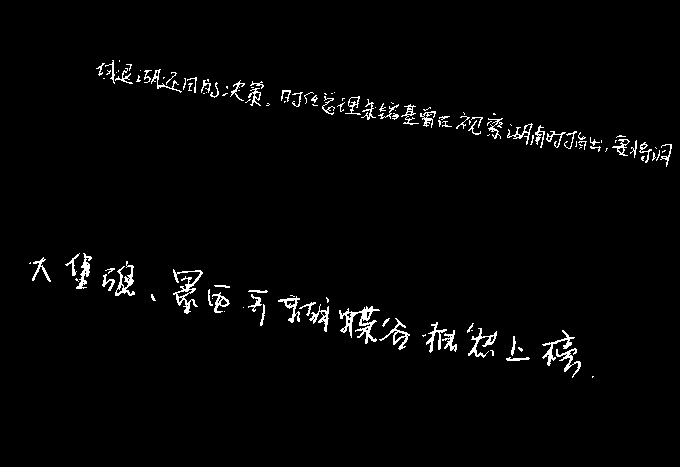 圩退湖还田的决策。时任总理朱镕基曾在视察湖南时指出,要将洞
大堡礁、墨西哥蝴蝶谷赫然上榜.